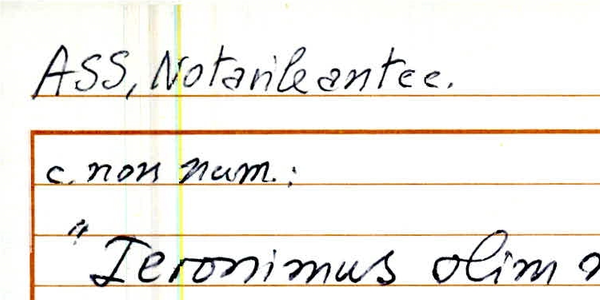 ASS, Notarile antec.
c. non num.:
"Ieronimus olim